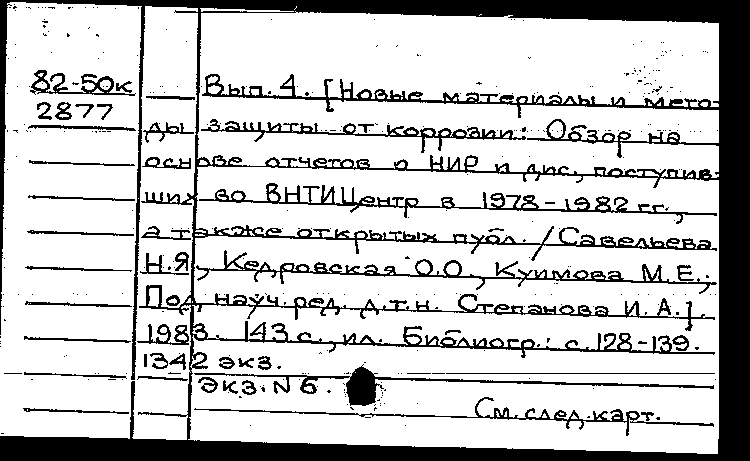 82-50к Вып. 4. [Новые материалы и мето-
2877
ды защиты от коррозии: Обзор на
основе отчетов о НИР и дис., поступив-
ших во ВНТИЦентр в 1978-1982 гг.,
а также открытых публ. / Савельева
Н.Я., Кедровская О.О., Куимова М.Е.;
Под науч. ред. д.т.н. Степанова И.А.].
1983. 143 с., ил. Библиогр.: с. 128-139.
1342 экз.
экз. N 6.
См. след. карт.